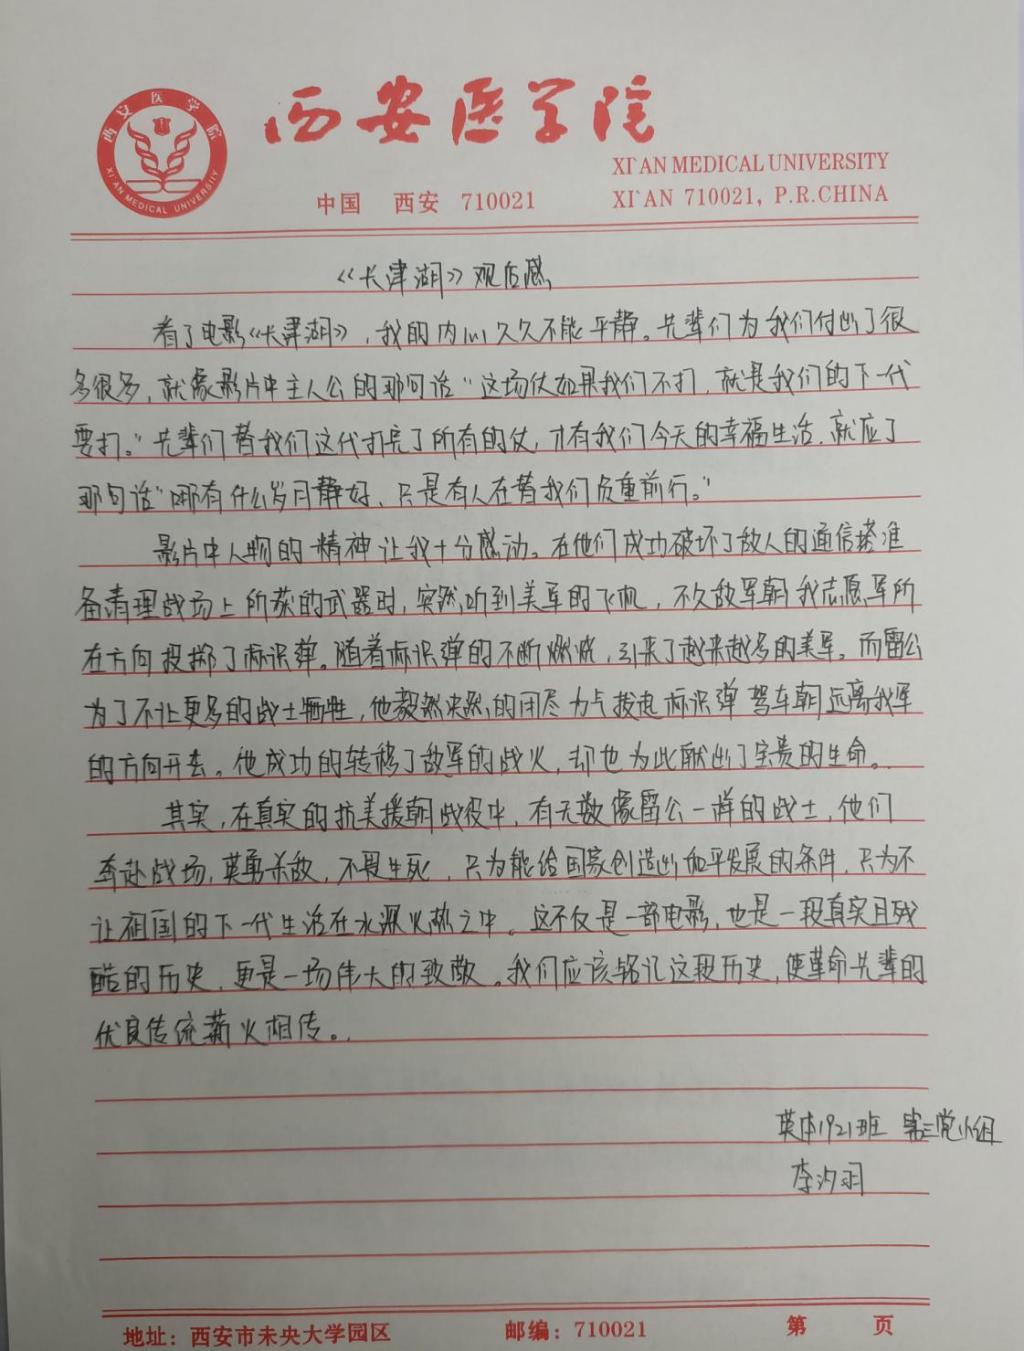 西安医学院
西安医学院
XI'AN MEDICAL UNIVERSITY
XI'AN MEDICAL UNIVERSITY
中国 西安 710021
XI'AN 710021, P.R.CHINA
《长津湖》观后感
看了电影《长津湖》，我的内心久久不能平静。先辈们为我们付出了很
多很多，就像影片中主人公的那句话“这场仗如果我们不打，就是我们的下一代
要打。”先辈们替我们这代打完了所有的仗，才有我们今天的幸福生活，就应了
那句话“哪有什么岁月静好，只是有人在替我们负重前行。”
影片中人物的精神让我十分感动。在他们成功破坏了敌人的通信塔准
备清理战场上所获的武器时，突然听到美军的飞机，不久敌军朝我志愿军所
在方向投掷了标识弹。随着标识弹的不断燃烧，引来了越来越多的美军。而雷公
为了不让更多的战士牺牲，他毅然决然的用尽力气拔起标识弹驾车朝远离我军
的方向开去。他成功的转移了敌军的战火，却也为此献出了宝贵的生命。
其实，在真实的抗美援朝战役中，有无数像雷公一样的战士，他们
奔赴战场，英勇杀敌，不畏生死，只为能给国家创造出和平发展的条件，只为不
让祖国的下一代生活在水深火热之中。这不仅是一部电影，也是一段真实且残
酷的历史，更是一场伟大的致敬。我们应该铭记这段历史，使革命先辈的
优良传统薪火相传。
英本1921班 第三党小组
李汐羽
地址：西安市未央大学园区 邮编：710021 第 页